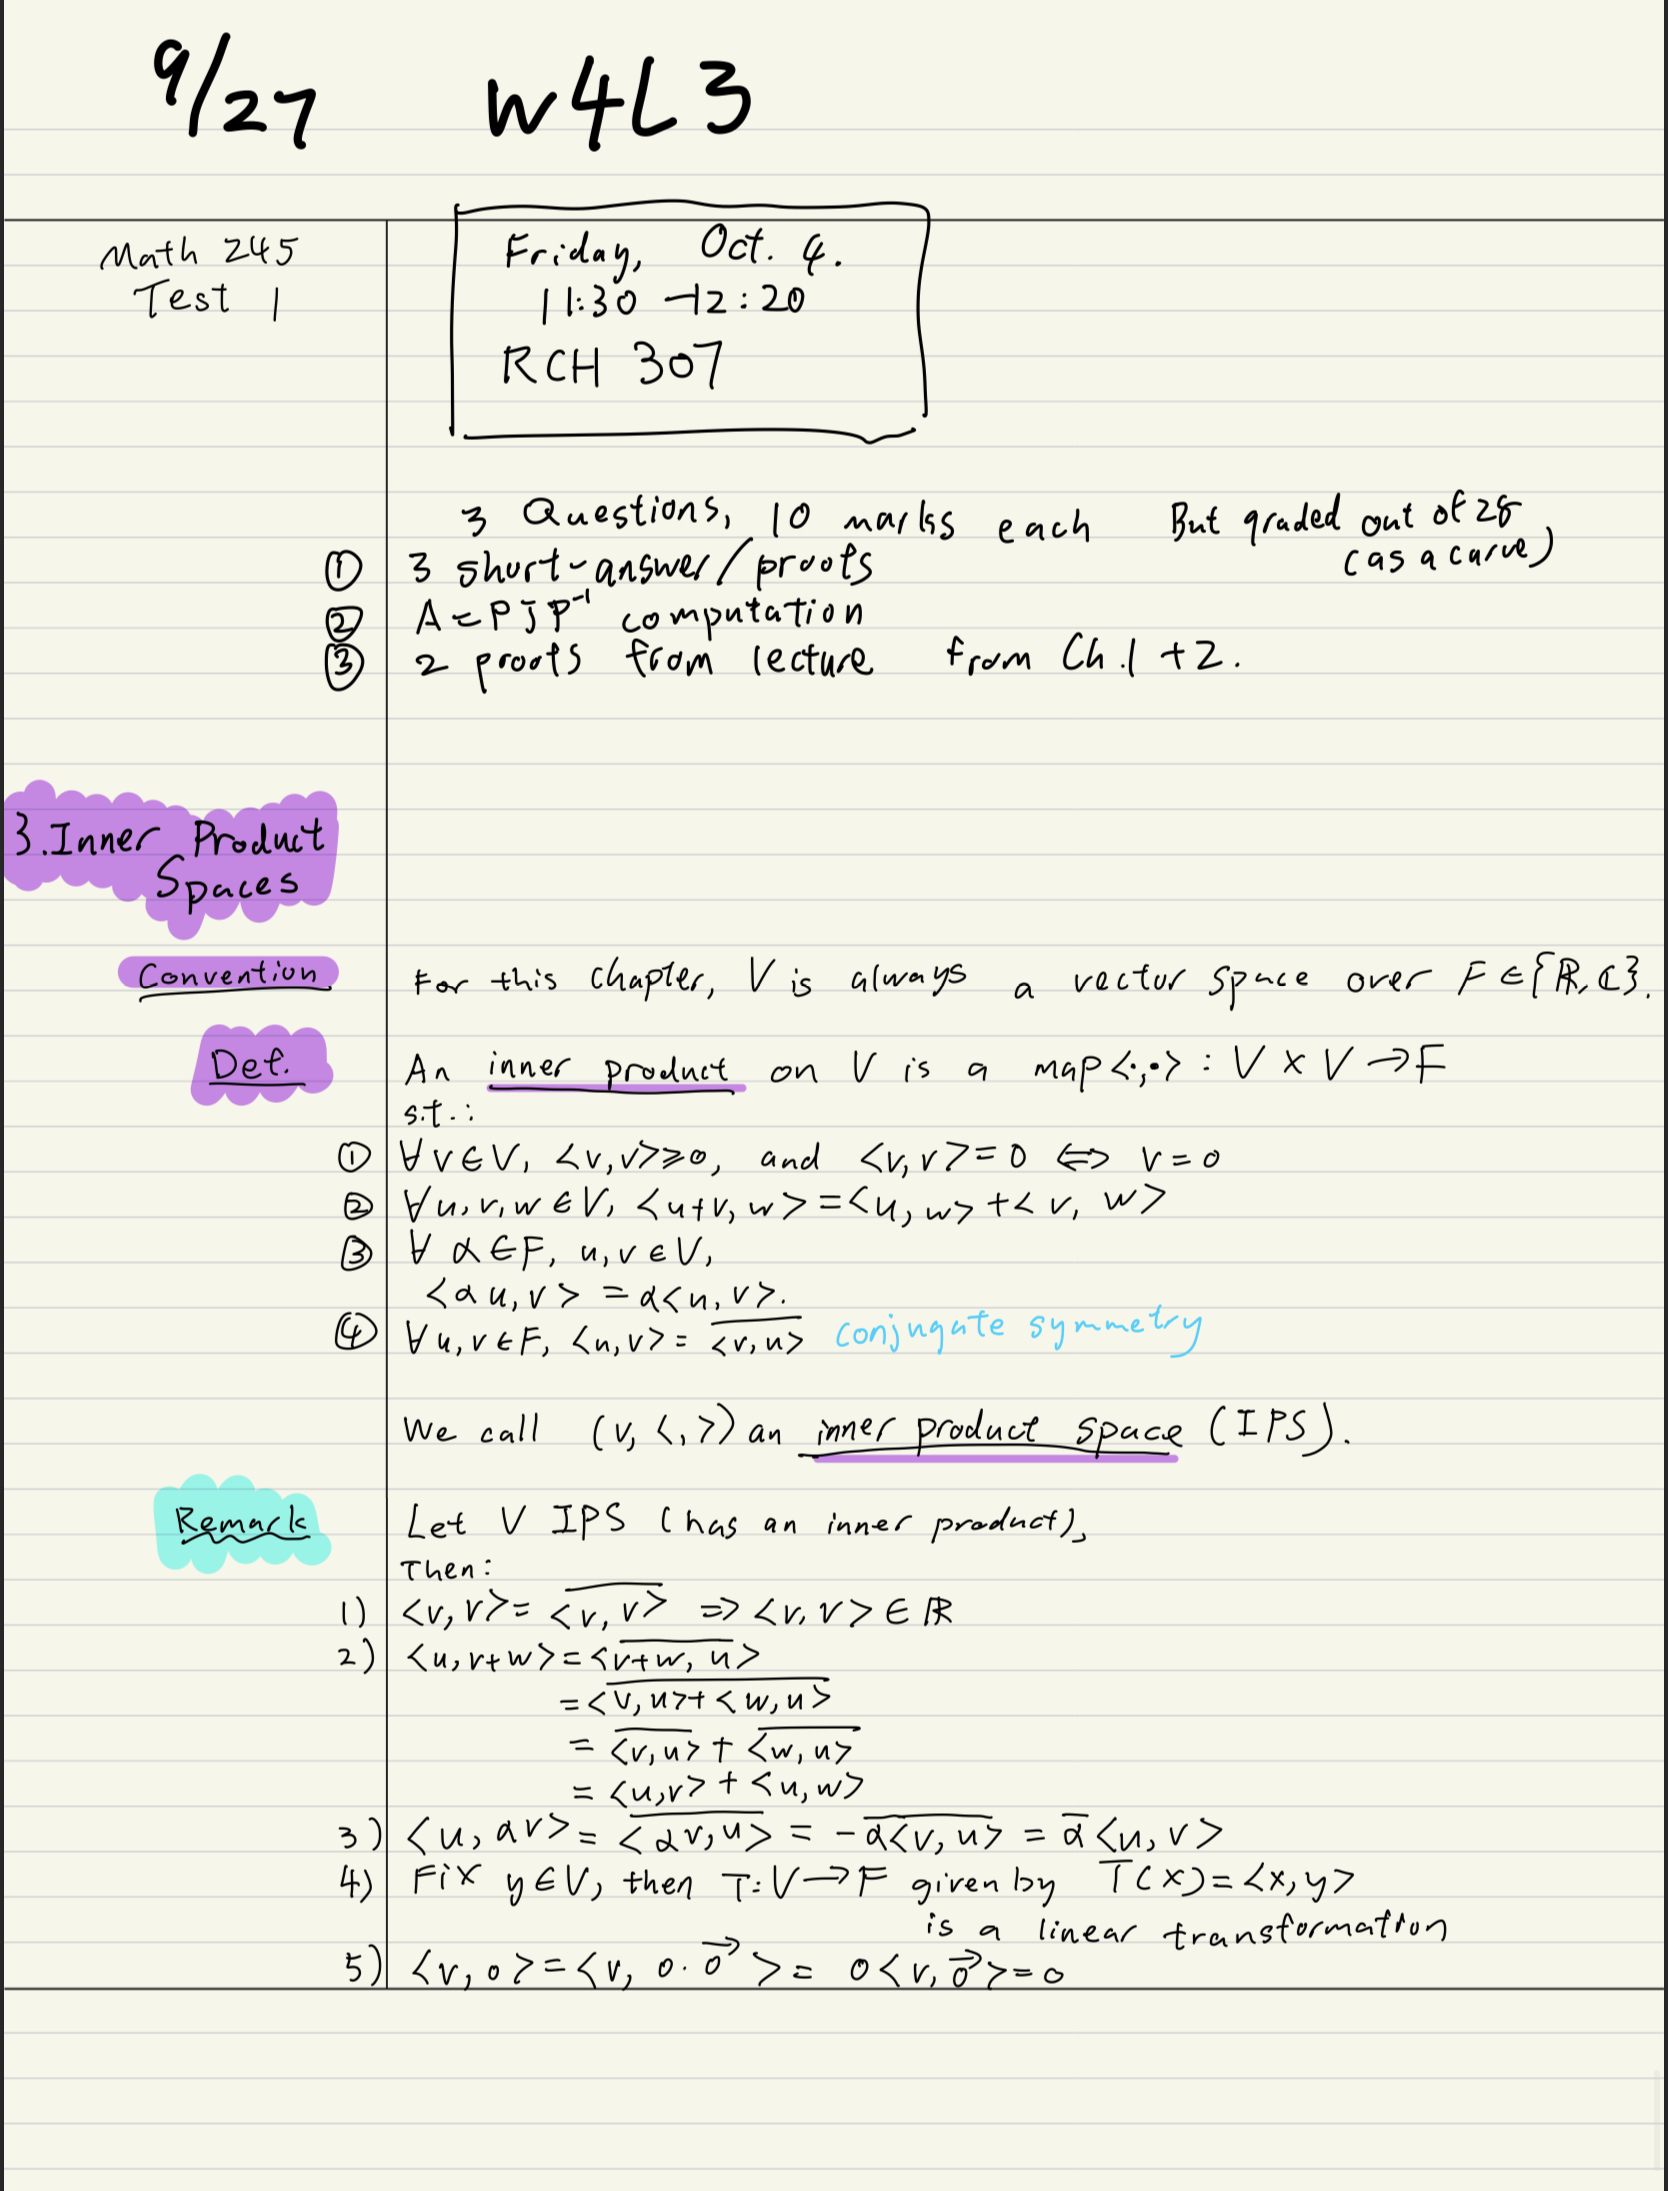 9/27 W4L3
Math 245
Test 1
Friday, Oct. 4.
11:30 -12:20
RCH 307
3 Questions, 10 marks each But graded out of 28
(as a curve)
① 3 short-answer/proofs
② A=PJP⁻¹ computation
③ 2 proofs from lecture from Ch.1 +2.
3.Inner Product
Spaces
Convention For this chapter, V is always a vector space over F∈{ℝ,ℂ}.
Def. An inner product on V is a map <·,·> : V × V →F
s.t.:
① ∀v∈V, <v,v>≥0, and <v,v>=0 ⟺ v=0
② ∀u,v,w∈V, <u+v,w>=<u,w>+<v,w>
③ ∀ α∈F, u,v∈V,
<αu,v> =α<u,v>.
④ ∀u,v∈F, <u,v>= \overline{<v,u>} conjugate symmetry
We call (V, <,>) an inner product space (IPS).
Remark Let V IPS (has an inner product),
Then:
1) <v,v>= \overline{<v,v>} => <v,v>∈ℝ
2) <u,v+w>=\overline{<v+w,u>}
=\overline{<v,u>+<w,u>}
= \overline{<v,u>} + \overline{<w,u>}
= <u,v> + <u,w>
3) <u,αv>= \overline{<αv,u>} = -\overline{α<v,u>} = \overline{α}<u,v>
4) Fix y∈V, then T:V→F given by T(x)=<x,y>
is a linear transformation
5) <v,0>=<v, 0·\vec{0}>= 0<v,\vec{0}>=0